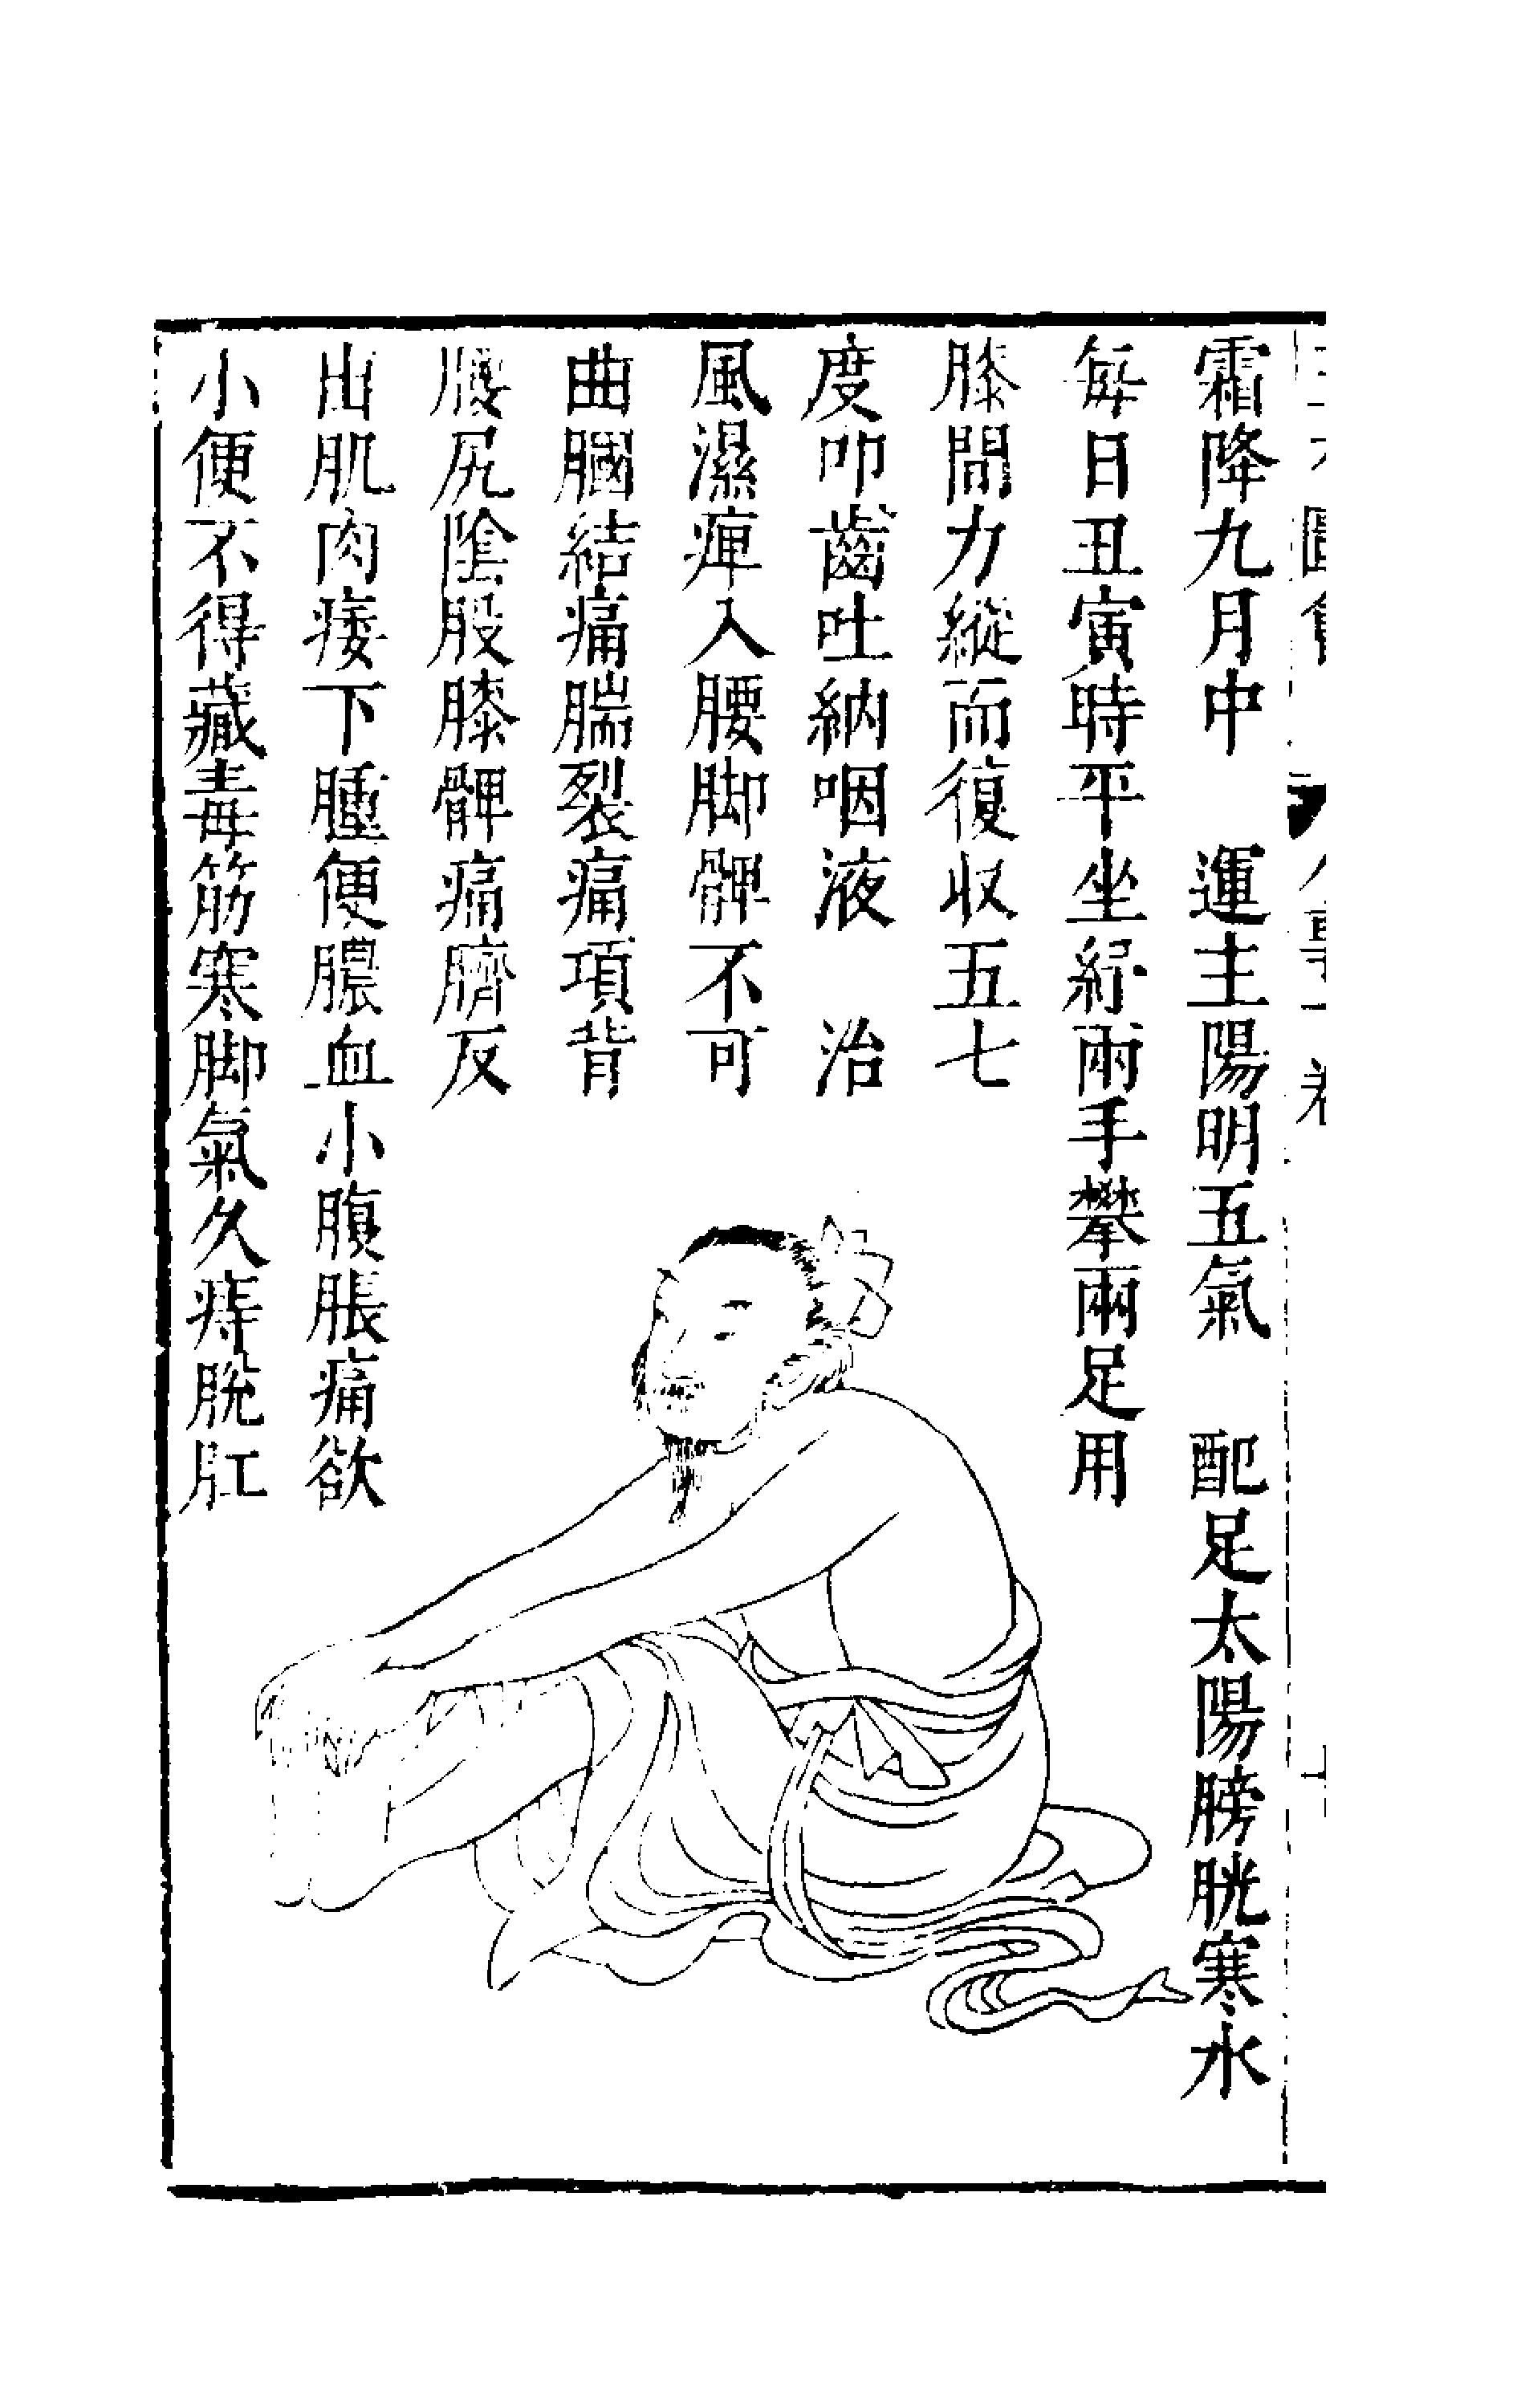 霜降九月中　運主陽明五氣　配足太陽膀胱寒水
每日丑寅時平坐紓兩手攀兩足用
膝間力縱而復収五七
度叩齒吐納咽液　治
風濕痺入腰脚髀不可
曲膕結痛腨裂痛項背
腰尻陰股膝髀痛臍反
出肌肉痿下腫便膿血小腹脹痛欲
小便不得藏毒筋寒脚氣久痔脫肛